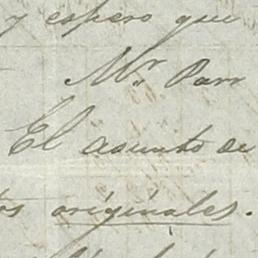 y espero que
Mr Parr
El asunto de
tos originales.